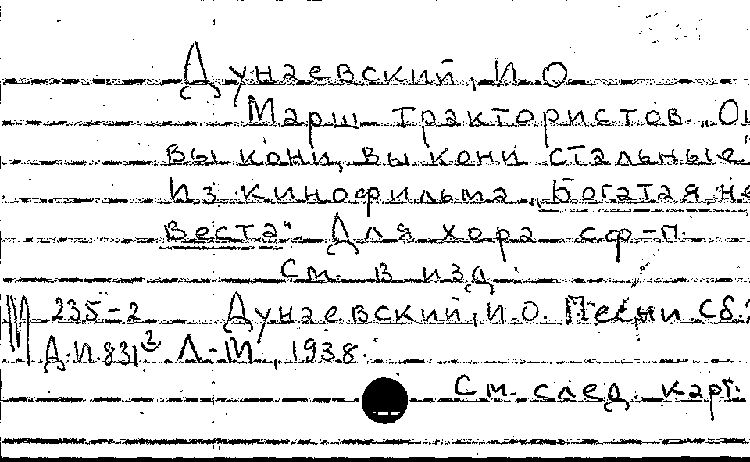 Дунаевский, И. О.
Марш трактористов „Ой
вы кони, вы кони стальные"
Из кинофильма „Богатая не-
веста". Для хора с ф-п.
См. в изд.
235-2 Дунаевский, И. О. Песни Сб.
Д.И.831² Л-М, 1938.
См. след. карт.